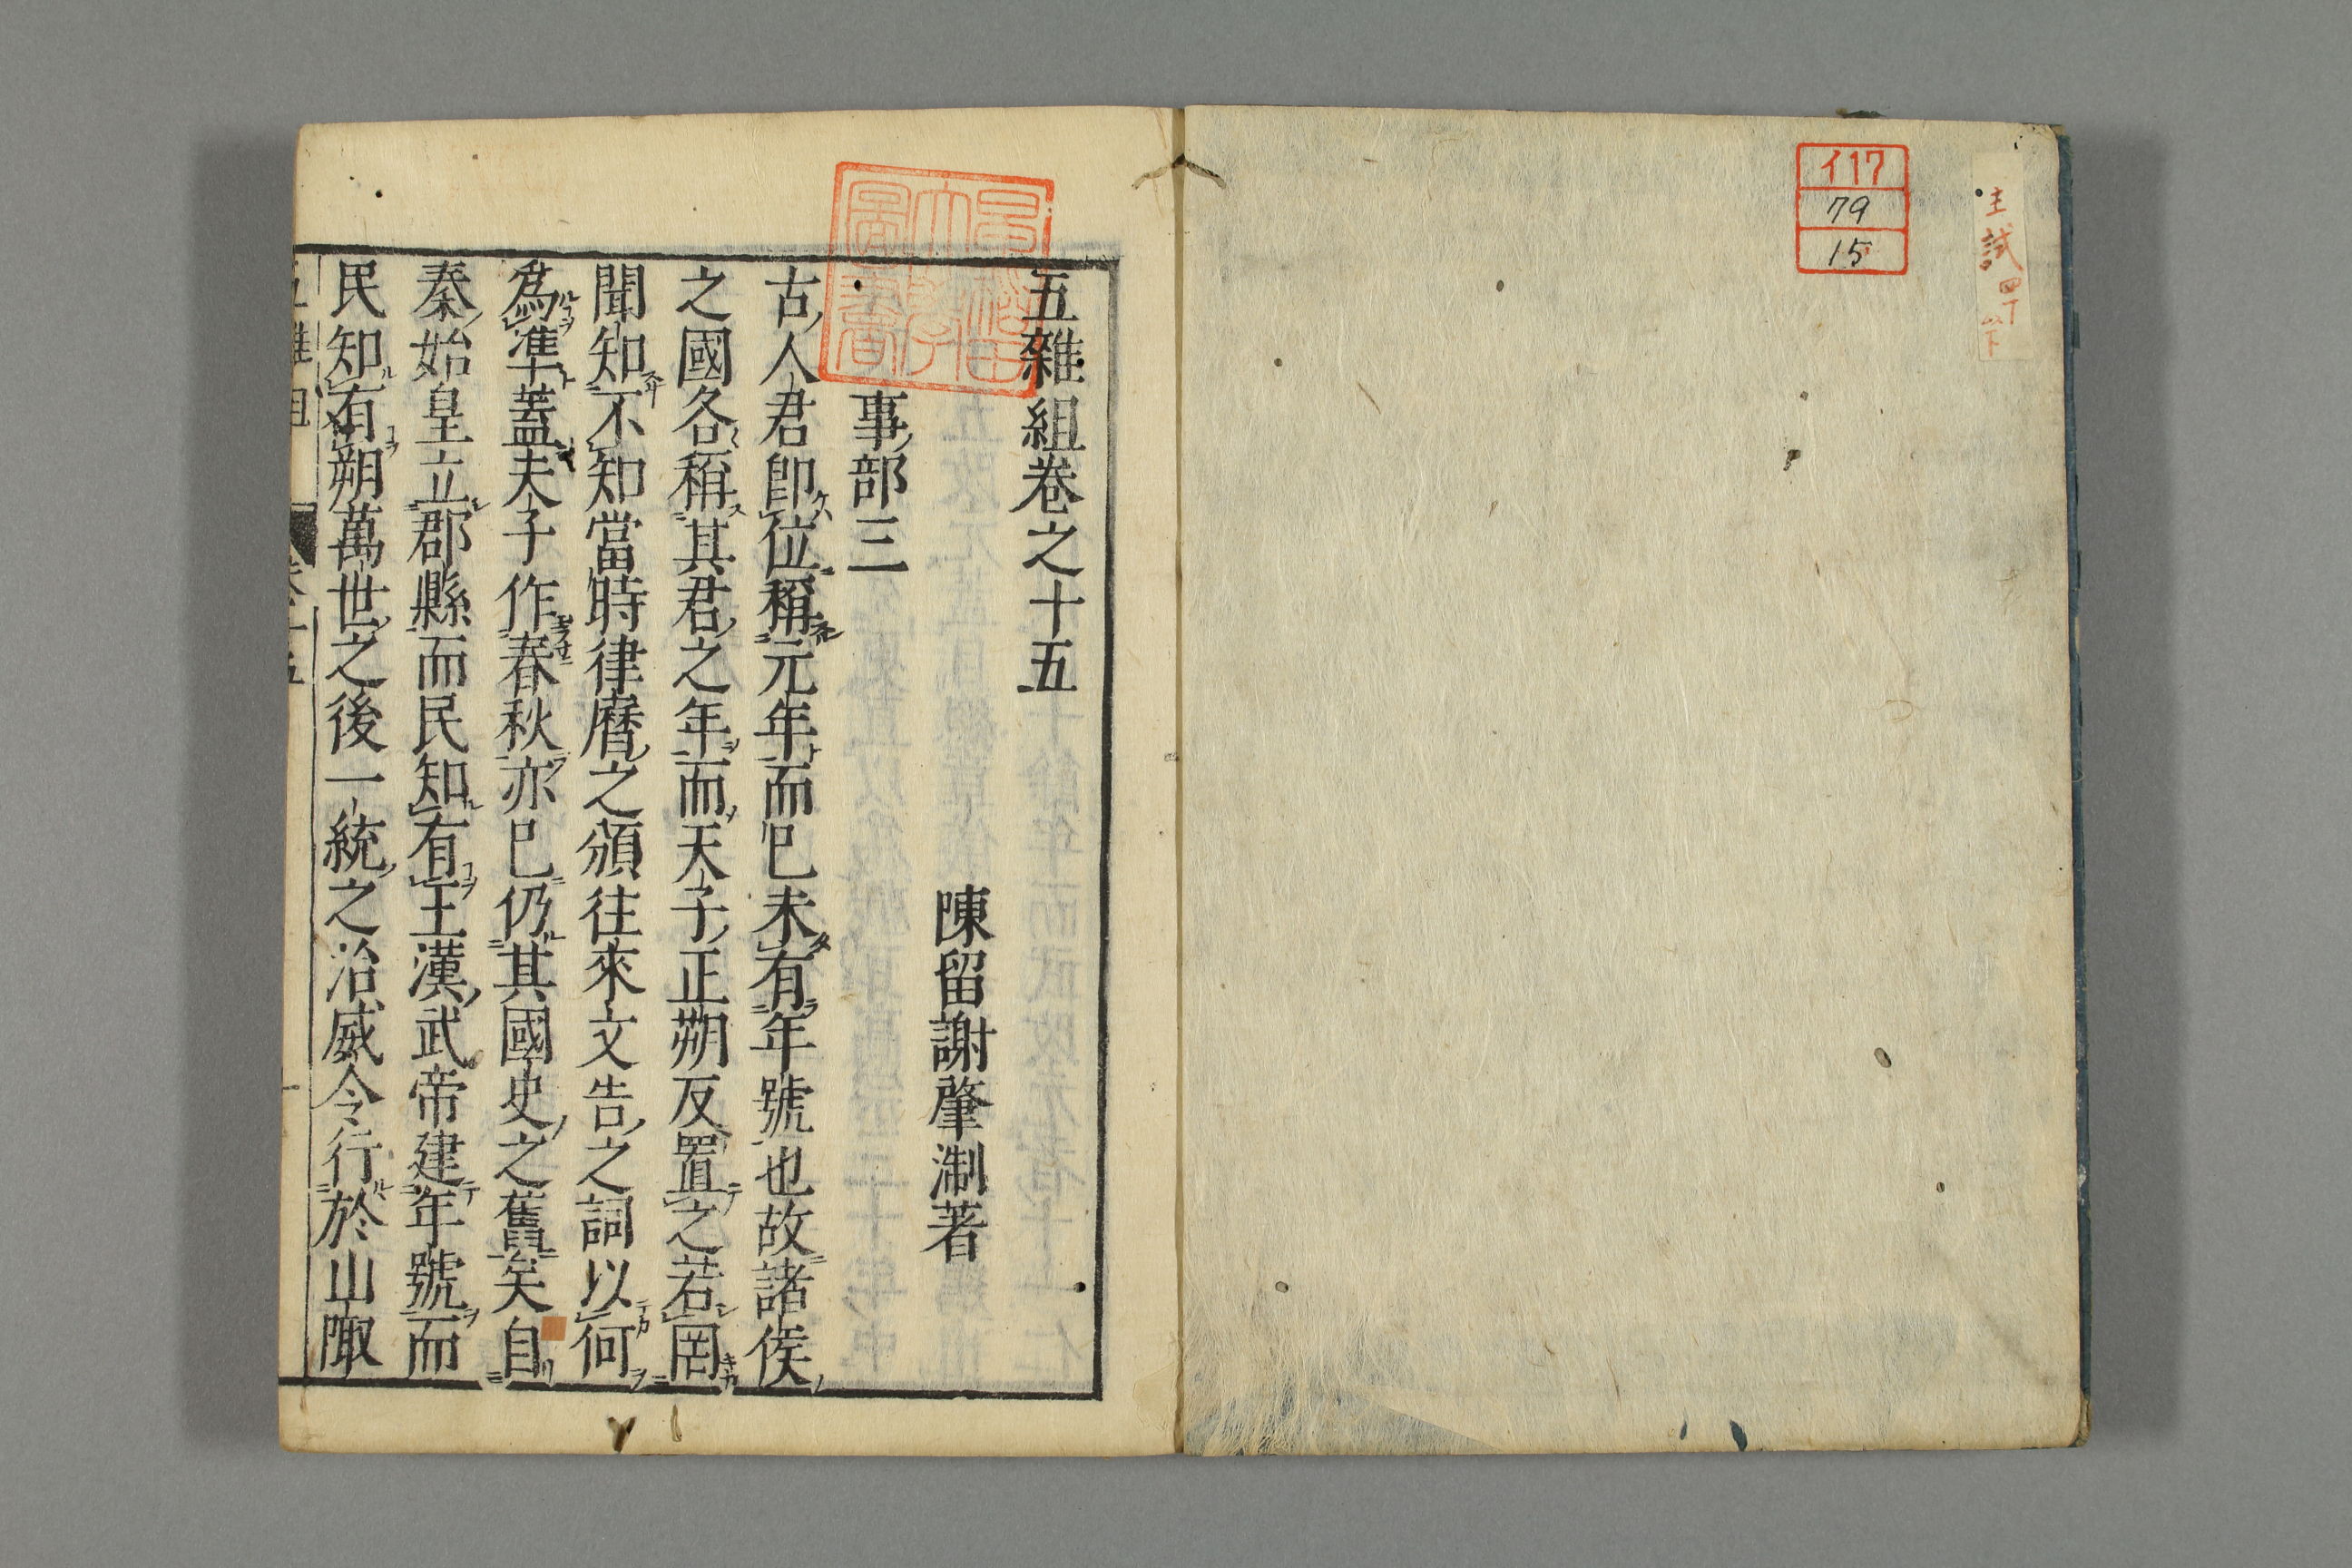 主試四丁下
イ17
79
15
早稲田大學圖書
五雜組卷之十五
陳留謝肇淛著
事部三
古人君卽位稱元年而已未有年號也故諸侯
之國各稱其君之年而天子正朔反置之若罔
聞知不知當時律曆之頒往來文告之詞以何
爲準蓋夫子作春秋亦已仍其國史之舊矣自
秦始皇立郡縣而民知有王漢武帝建年號而
民知有朔萬世之後一統之治威令行於山陬